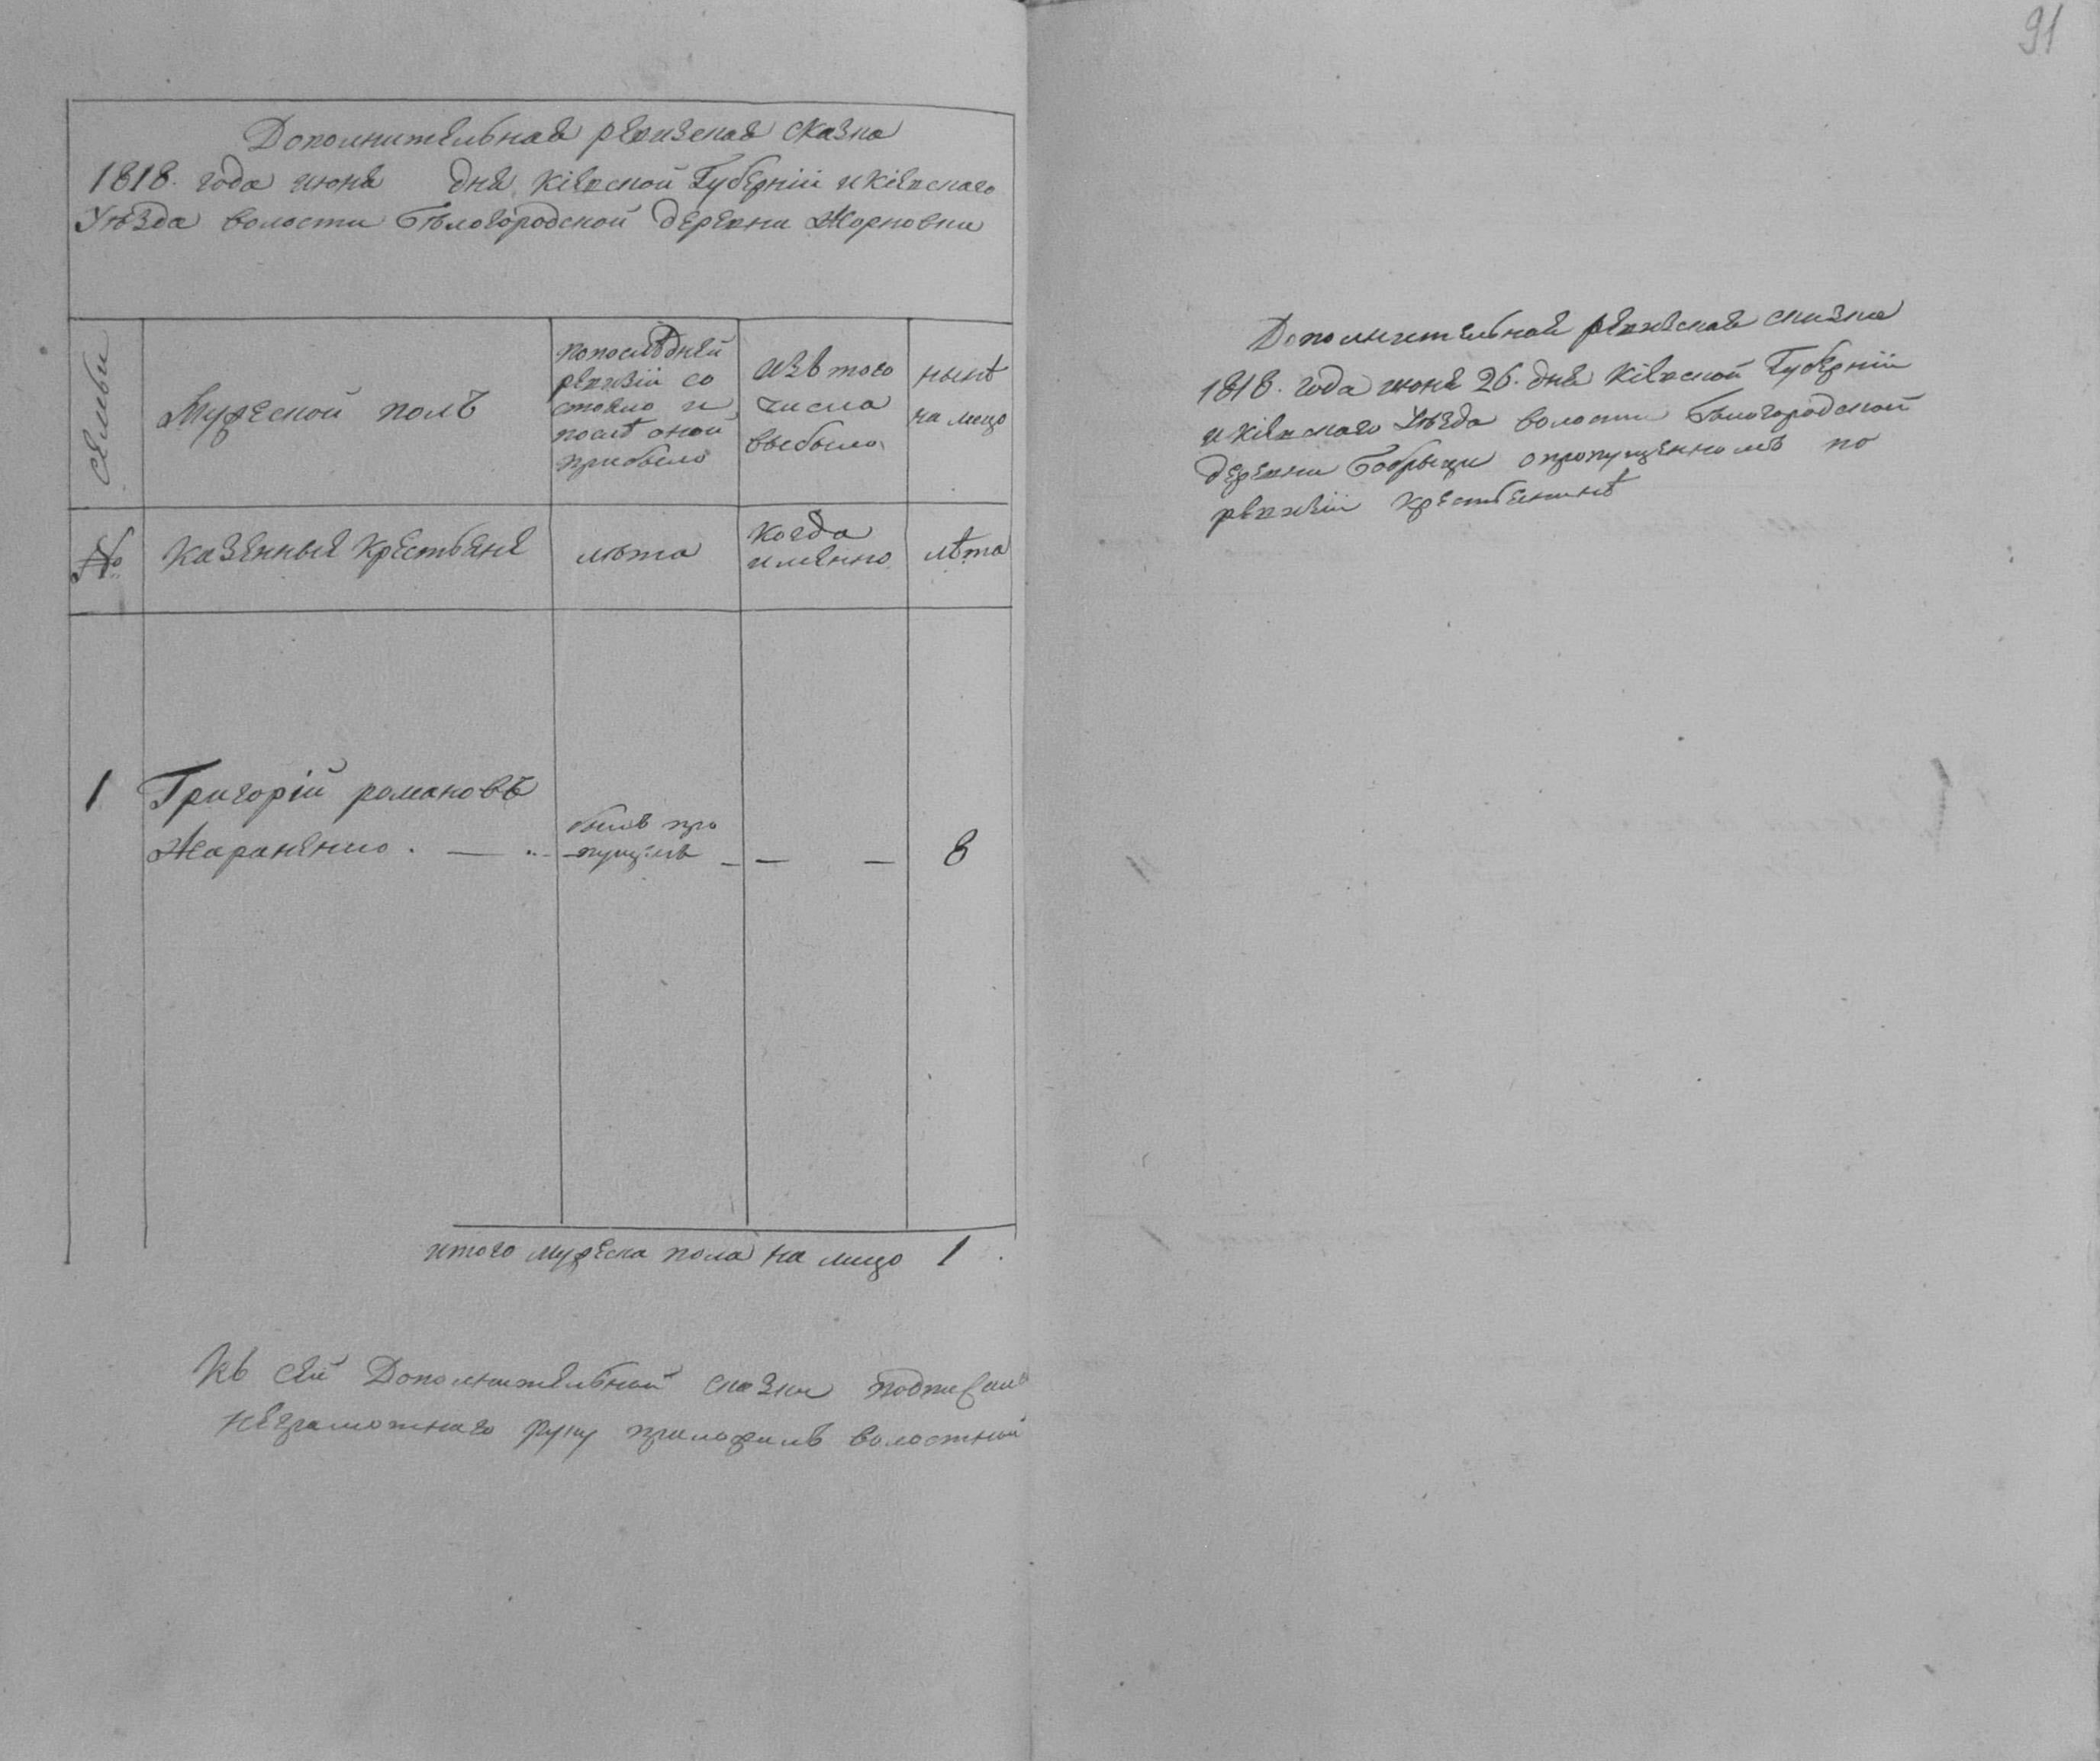 Дополнительная ревизская сказка
1818. года июня дня Кіевской Губерніи и Кіевскаго
Уѣзда волости Бѣлогородской деревни Жорновки
семьи
Мужеской полъ
по последней
ревизіи со
стояло и
послѣ оной
прибыло
изъ того
числа
выбыло
нынѣ
на лицо
№
казенные крестьяне
лѣта
когда
именно
лѣта
1 Григорій романовъ
былъ про
Жараненко . — — пущенъ — — — 8
итого мужеска пола на лицо 1
Къ сей Дополнительной сказки подписался
неграмотнаго руку приложилъ волостный
91
Дополнительная ревизская сказка
1818. года июня 26. дня Кіевской Губерніи
и Кіевскаго Уѣзда волости Бѣлогородской
деревни Бобрыци о пропущенномъ по
ревизіи крестьянинѣ